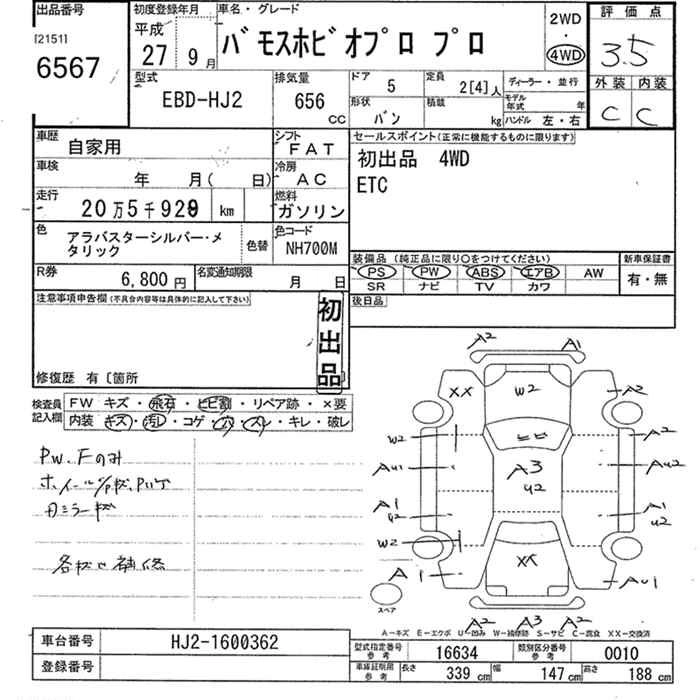 出品番号
[2151]
6567
初度登録年月
平成
27
9
月
車名・グレード
バモスホビオプロ プロ
2WD
・
4WD
評価点
3.5
外装
内装
C
C
型式
EBD-HJ2
排気量
656
CC
ドア
5
定員
2[4]人
ディーラー・並行
形状
バン
積載
kg
モデル年式
年
ハンドル 左・右
車歴
自家用
シフト
FAT
車検
年 月( 日)
冷房
AC
走行
20万5千928
km
燃料
ガソリン
色
アラバスターシルバー・メタリック
色替
色コード
NH700M
R券
6,800 円
名変通知期限
月 日
セールスポイント(正常に機能するものに限ります)
初出品 4WD
ETC
装備品 (純正品に限り○をつけてください)
PS
PW
ABS
エアB
AW
SR
ナビ
TV
カワ
新車保証書
有・無
後日品
注意事項申告欄(不具合内容等は具体的に記入して下さい)
初出品
修復歴 有〔箇所
検査員記入欄
FW キズ・飛石・ヒビ割・リペア跡・×要
内装 キズ・汚レ・コゲ・穴・スレ・キレ・破レ
PW.Fのみ
各松ヒ補修
A2
A1
XX
W2
A2
W2
A2
AU1
A3
U2
AU2
A1
U2
A1
U2
W2
XX
A1
AU1
スペア
A2
A3
A2
A-キズ E-エクボ U-凹み W-補修跡 S-サビ C-腐食 XX-交換済
車台番号
HJ2-1600362
登録番号
型式指定番号
参考
16634
類別区分番号
参考
0010
車庫証明用
参考
長さ
339 cm
幅
147 cm
高さ
188 cm